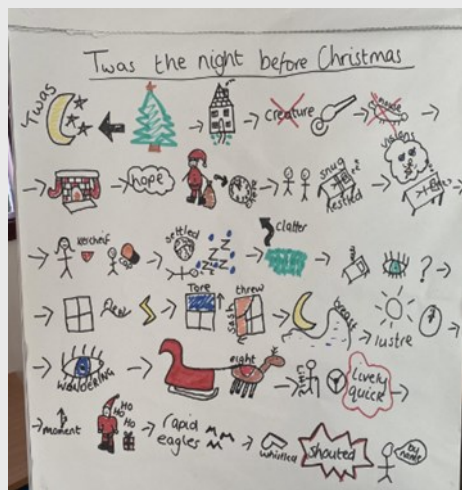 Twas the night before Christmas
Twas
creature mouse
hope snug
nestled
visions
kercheif cap settled zzz clatter ?
flew Tore threw
sash breast lustre
wondering eight little lively
quick
moment HO
HO
HO rapid
eagles whistled shouted by
name